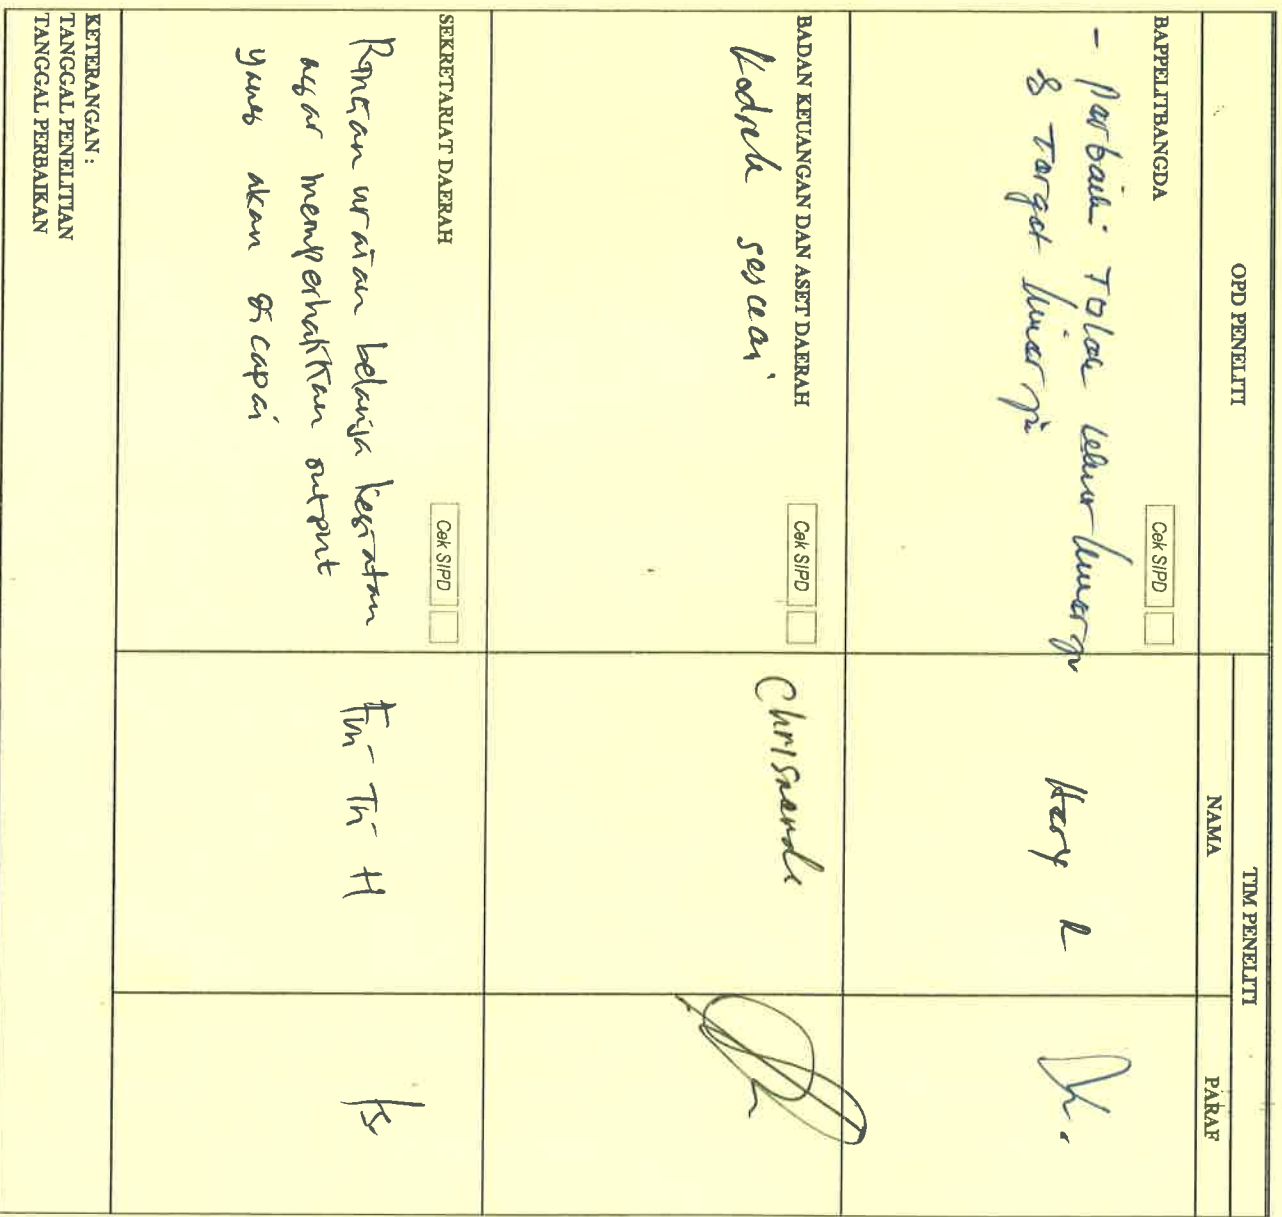 OPD PENELITI
TIM PENELITI
NAMA
PARAF
BAPPELITBANGDA
Cek SIPD
- Perbaiki Tolok Ukur kinerja
& Target kinerja
Hary R
BADAN KEUANGAN DAN ASET DAERAH
Cek SIPD
Kodrek sesuai
SEKRETARIAT DAERAH
Cek SIPD
Rincian uraian belanja kegiatan
agar memperhatikan output
yang akan dicapai
Tri H
KETERANGAN :
TANGGAL PENELITIAN
TANGGAL PERBAIKAN